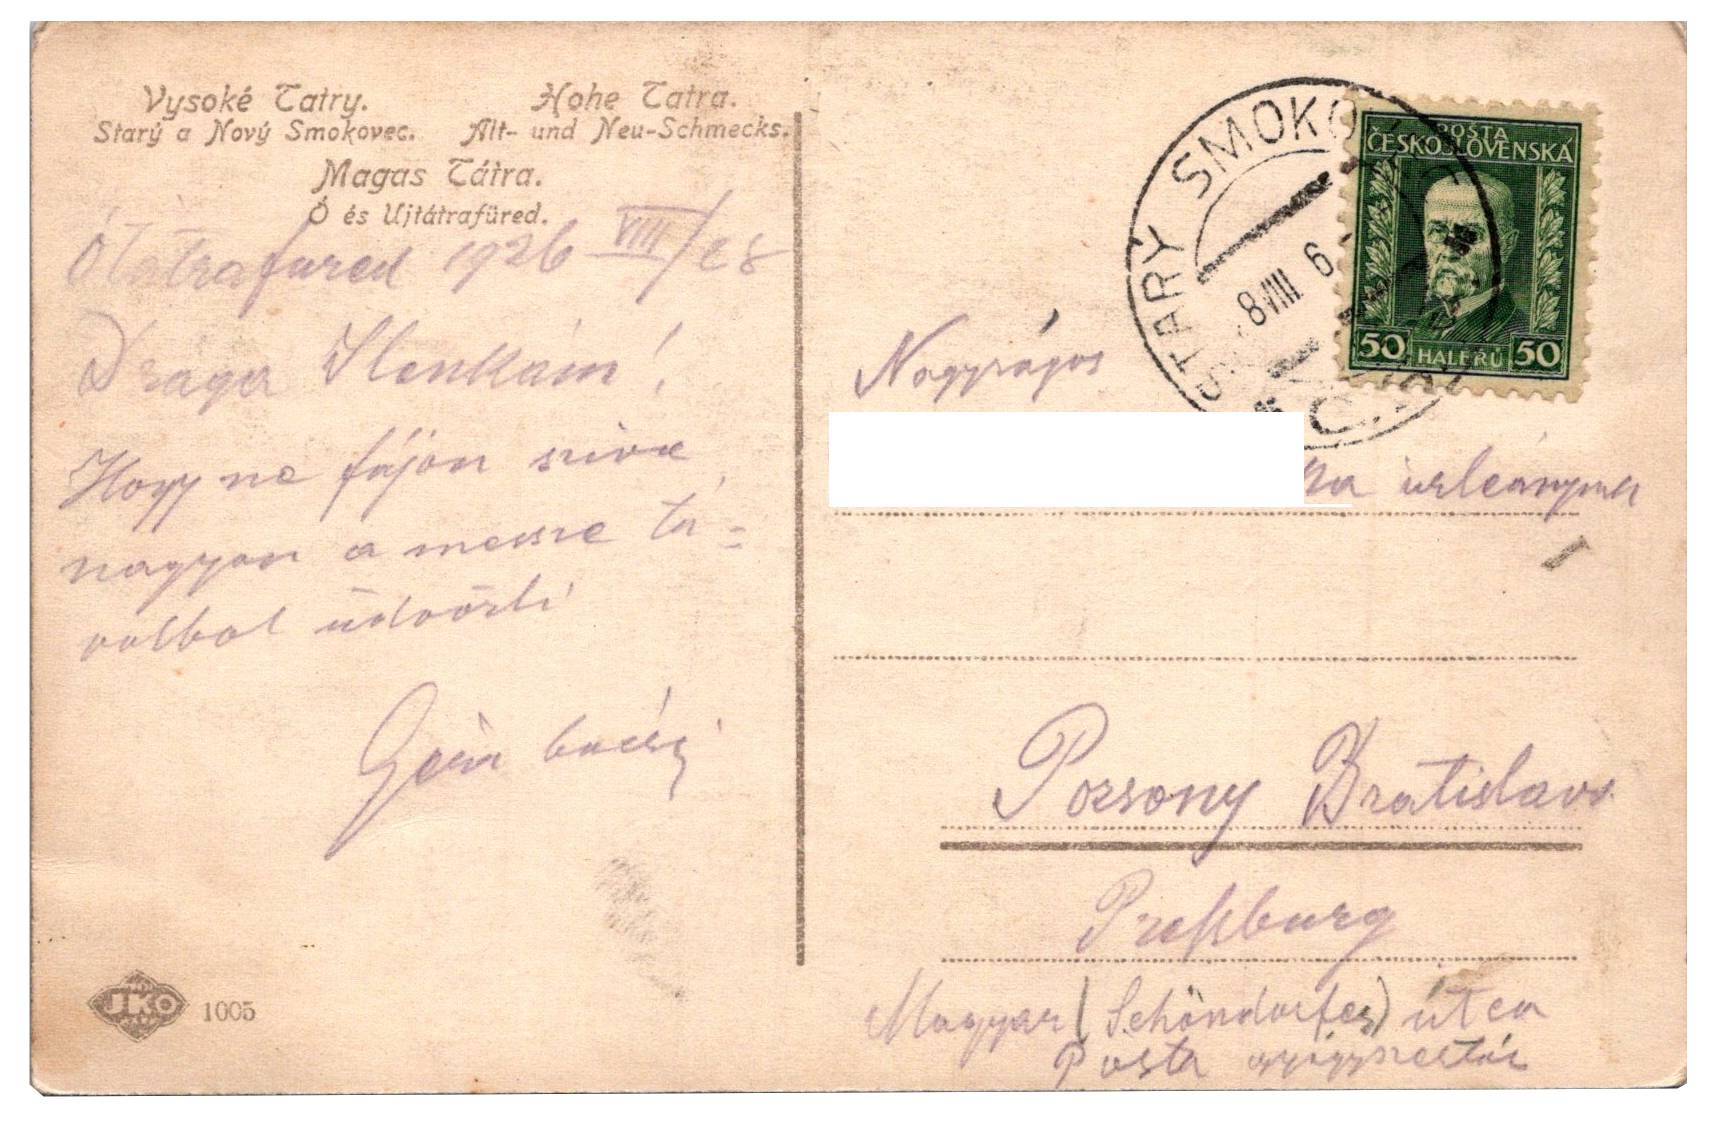 Vysoké Tatry.
Starý a Nový Smokovec.
Hohe Tatra.
Alt- und Neu-Schmecks.
Magas Tátra.
Ó és Ujtátrafüred.
Ótátrafüred 1926 VIII/28
Drága Ilenkám!
Hogy ne fájon szive
nagyon a messze tá=
volbol üdvözli
Géza bácsi
JKO
1005
STARÝ SMOKO
8 VIII 6
Č.
POSTA
ČESKOSLOVENSKÁ
50 HALÉRŮ 50
Nagyságos
ka urleánynak
Pozsony Bratislava
Preßburg
Magyar (Schöndorfer) útca
Posta gyógyszertár